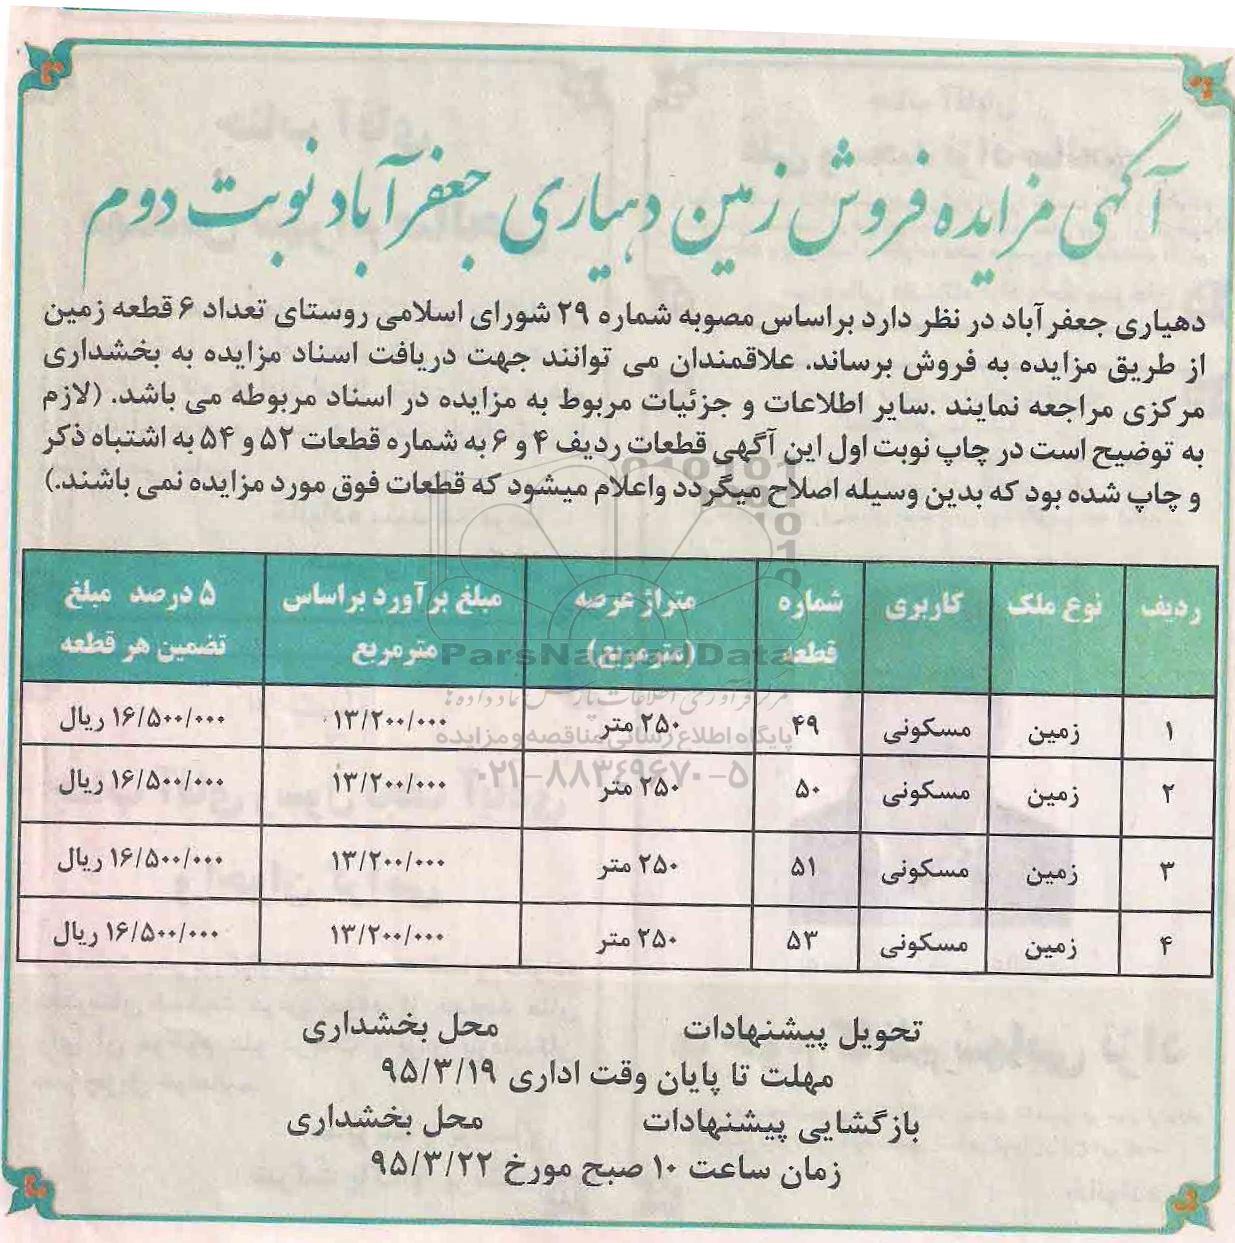 آگهی مزایده فروش زمین دهیاری جعفرآباد نوبت دوم
دهیاری جعفرآباد در نظر دارد براساس مصوبه شماره ۲۹ شورای اسلامی روستای تعداد ۶ قطعه زمین
از طریق مزایده به فروش برساند. علاقمندان می توانند جهت دریافت اسناد مزایده به بخشداری
مرکزی مراجعه نمایند .سایر اطلاعات و جزئیات مربوط به مزایده در اسناد مربوطه می باشد. (لازم
به توضیح است در چاپ نوبت اول این آگهی قطعات ردیف ۴ و ۶ به شماره قطعات ۵۲ و ۵۴ به اشتباه ذکر
و چاپ شده بود که بدین وسیله اصلاح میگردد واعلام میشود که قطعات فوق مورد مزایده نمی باشند.)
ردیف نوع ملک کاربری شماره قطعه متراژ عرصه (مترمربع) مبلغ برآورد براساس مترمربع ۵ درصد مبلغ تضمین هر قطعه
۱ زمین مسکونی ۴۹ ۲۵۰ متر ۱۳/۲۰۰/۰۰۰ ۱۶/۵۰۰/۰۰۰ ریال
۲ زمین مسکونی ۵۰ ۲۵۰ متر ۱۳/۲۰۰/۰۰۰ ۱۶/۵۰۰/۰۰۰ ریال
۳ زمین مسکونی ۵۱ ۲۵۰ متر ۱۳/۲۰۰/۰۰۰ ۱۶/۵۰۰/۰۰۰ ریال
۴ زمین مسکونی ۵۳ ۲۵۰ متر ۱۳/۲۰۰/۰۰۰ ۱۶/۵۰۰/۰۰۰ ریال
ParsNamadData
مرکز فرآوری اطلاعات پارس نماد داده ها
پایگاه اطلاع رسانی مناقصه و مزایده
۰۲۱-۸۸۳۴۹۶۷۰-۵
تحویل پیشنهادات محل بخشداری
مهلت تا پایان وقت اداری ۹۵/۳/۱۹
بازگشایی پیشنهادات محل بخشداری
زمان ساعت ۱۰ صبح مورخ ۹۵/۳/۲۲